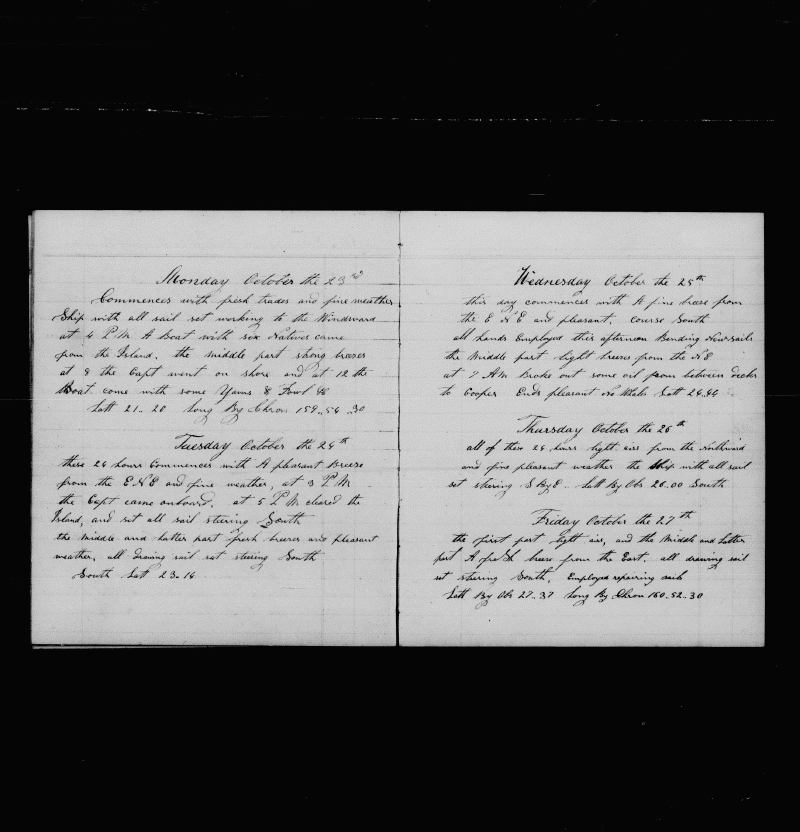 Monday October the 23rd
Commences with fresh trades and fine weather
Ship with all sail set working to the Windward
at 4 P M A Boat with six Natives came
from the Island. the middle part strong breezes
at 8 the Capt went on shore and at 12 the
Boat come with some Yams & Fowl &c
Latt 21..20 Long By Chron 159..54..30
Tuesday October the 24th
these 24 hours Commences with A pleasant Breeze
from the E.N.E and fine weather, at 3 P M
the Capt came onboard. at 5 P M cleared the
Island, and set all sail stering South
the middle and latter part fresh breezes and pleasant
weather, all drawing sail sat steering South
South Latt 23..14
Wednesday October the 25th
this day commences with A fine breeze from
the E N E and pleasant. course South
all hands Employed this afternoon Bending New sails
the Middle part light breezes from the N E
at 7 A M Broke out some oil from between decks
to Cooper Ends pleasant No Whales Latt 24.44
Thursday October the 26th
all of these 24 hours light airs from the Northward
and fine pleasant weather the Ship with all sail
set stering S By E.. Latt By Obs 26.00 South
Friday October the 27th
the first part light airs, and the Middle and Latter
part A fresh breeze from the East. all drawing sail
set stering South, Employed repairing sails
Latt By Obs 27..37 Long By Chron 160..52..30